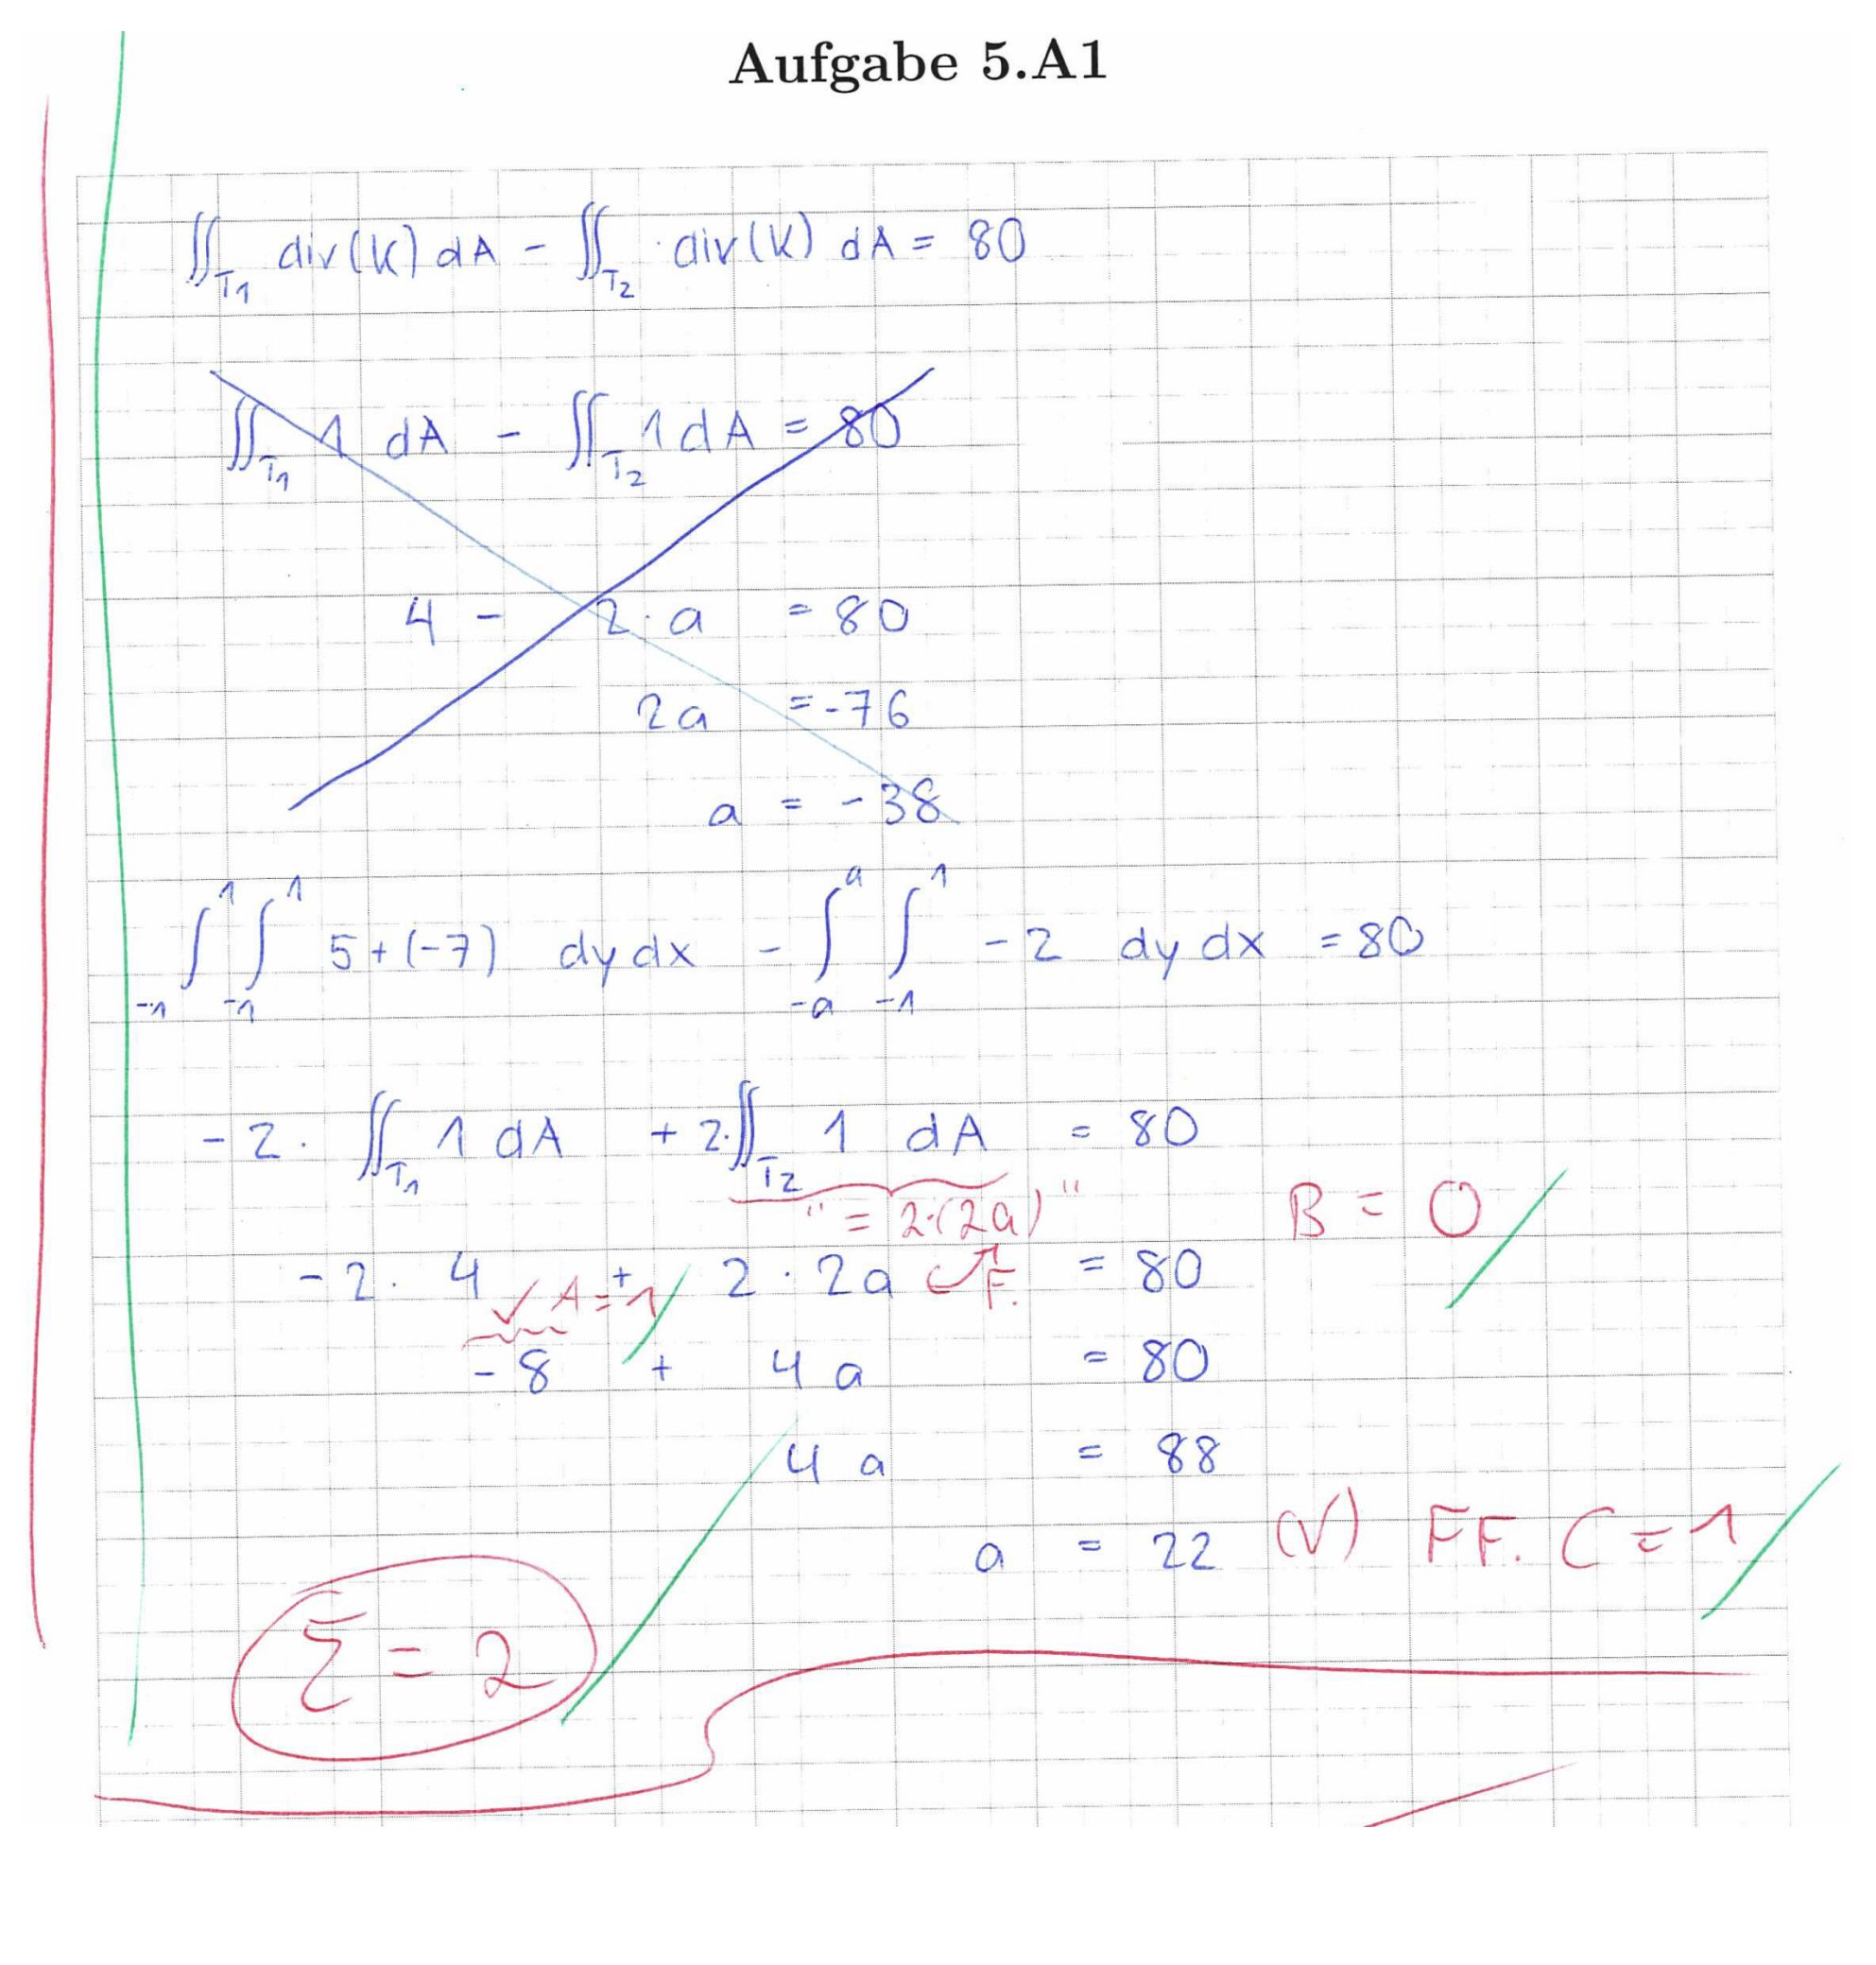 Aufgabe 5.A1
∬_T1 div(K) dA - ∬_T2 div(K) dA = 80
∬_T1 1 dA - ∬_T2 1 dA = 80
4 - 2·a = 80
2a = -76
a = -38
∫_-1^1 ∫_-1^1 5+(-7) dy dx - ∫_-a^a ∫_-1^1 -2 dy dx = 80
-2· ∬_T1 1 dA + 2·∬_T2 1 dA = 80
"= 2·(2a)" B = 0
-2· 4 + 2·2a F. = 80
✓ A = 1
-8 + 4a = 80
4a = 88
a = 22 (√) FF. C = 1
Σ = 2